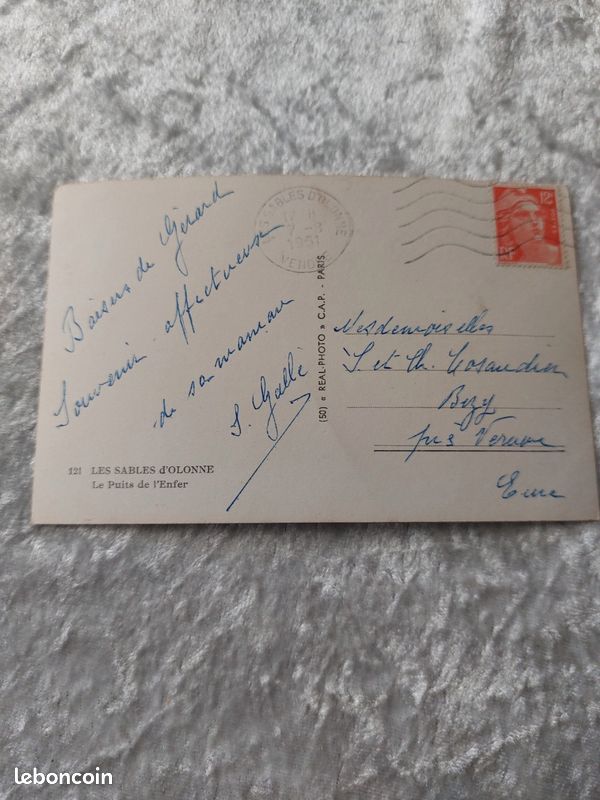 Baisers de Gérard
Souvenir affectueux
de sa maman
S. Gallé
121 LES SABLES d'OLONNE
Le Puits de l'Enfer
(50) « REAL-PHOTO » C.A.P. - PARIS
LES SABLES D'OLONNE
17 H
7 - 8
1951
VENDÉE
12F
RF
Mesdemoiselles
S. et Th.
Bizy
près Vernon
Eure
leboncoin